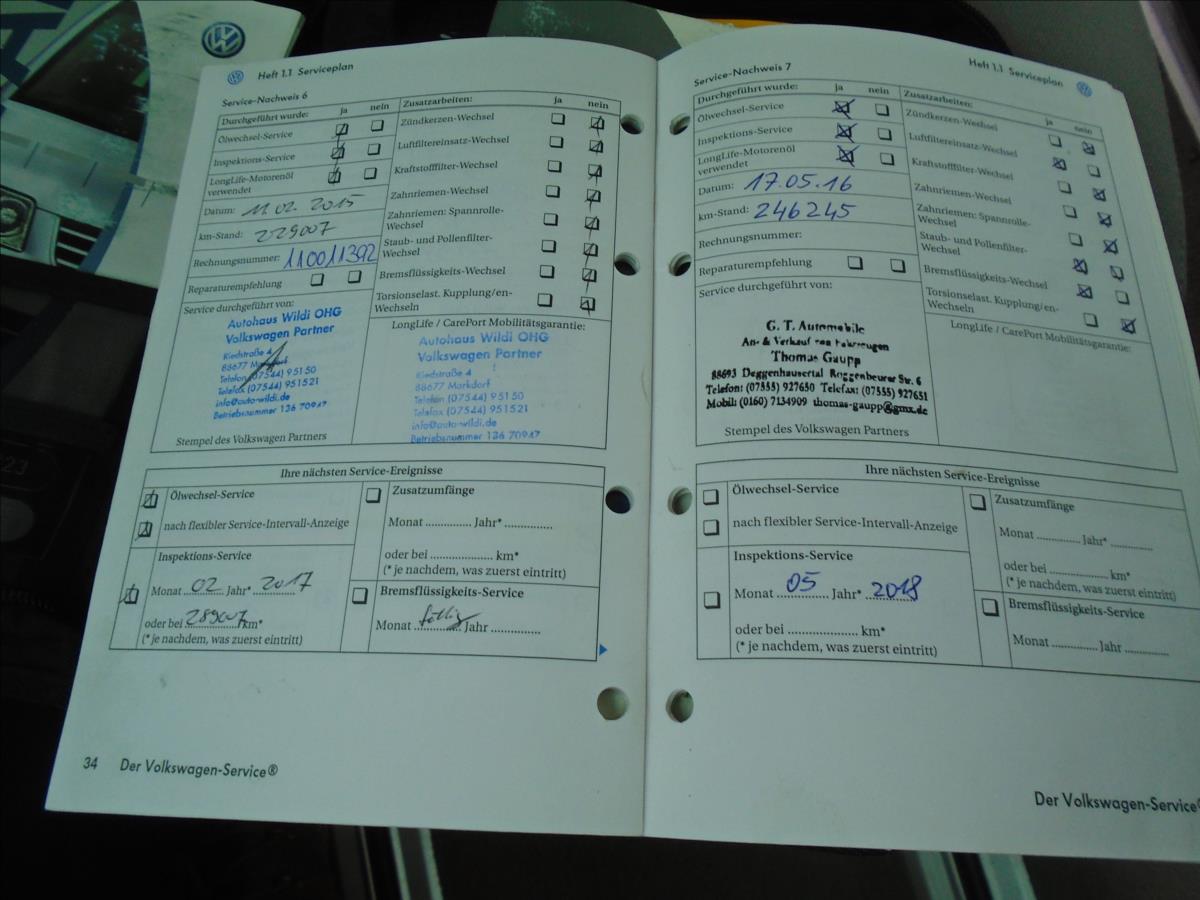 Heft 1.1 Serviceplan
Service-Nachweis 6
Durchgeführt wurde: ja nein
Ölwechsel-Service
Inspektions-Service
LongLife-Motorenöl
verwendet
Datum: 11.02.2015
km-Stand: 229007
Rechnungsnummer: 110011392
Reparaturempfehlung
Service durchgeführt von:
Autohaus Wildi OHG
Volkswagen Partner
Riedstraße 4
88677 Markdorf
Telefon (07544) 951 50
Telefax (07544) 951521
info@auto-wildi.de
Betriebsnummer 136 70947
Stempel des Volkswagen Partners
Zusatzarbeiten: ja nein
Zündkerzen-Wechsel
Luftfiltereinsatz-Wechsel
Kraftstofffilter-Wechsel
Zahnriemen-Wechsel
Zahnriemen: Spannrolle-
Wechsel
Staub- und Pollenfilter-
Wechsel
Bremsflüssigkeits-Wechsel
Torsionselast. Kupplung/en-
Wechseln
LongLife / CarePort Mobilitätsgarantie:
Autohaus Wildi OHG
Volkswagen Partner
Riedstraße 4
88677 Markdorf
Telefon (07544) 951 50
Telefax (07544) 951521
info@auto-wildi.de
Betriebsnummer 136 70947
Ihre nächsten Service-Ereignisse
Ölwechsel-Service
nach flexibler Service-Intervall-Anzeige
Inspektions-Service
Monat 02 Jahr* 2017
oder bei 289007 km*
(* je nachdem, was zuerst eintritt)
Zusatzumfänge
Monat .............. Jahr* ..............
oder bei .................... km*
(* je nachdem, was zuerst eintritt)
Bremsflüssigkeits-Service
Monat Jahr ..............
34 Der Volkswagen-Service®
Heft 1.1 Serviceplan
Service-Nachweis 7
Durchgeführt wurde: ja nein
Ölwechsel-Service
Inspektions-Service
LongLife-Motorenöl
verwendet
Datum: 17.05.16
km-Stand: 246245
Rechnungsnummer:
Reparaturempfehlung
Service durchgeführt von:
G. T. Automobile
An- & Verkauf von Fahrzeugen
Thomas Gaupp
88693 Deggenhausertal Roggenbeurer Str. 6
Telefon: (07555) 927650 Telefax: (07555) 927651
Mobil: (0160) 7134909 thomas-gaupp@gmx.de
Stempel des Volkswagen Partners
Zusatzarbeiten: ja nein
Zündkerzen-Wechsel
Luftfiltereinsatz-Wechsel
Kraftstofffilter-Wechsel
Zahnriemen-Wechsel
Zahnriemen: Spannrolle-
Wechsel
Staub- und Pollenfilter-
Wechsel
Bremsflüssigkeits-Wechsel
Torsionselast. Kupplung/en-
Wechseln
LongLife / CarePort Mobilitätsgarantie:
Ihre nächsten Service-Ereignisse
Ölwechsel-Service
nach flexibler Service-Intervall-Anzeige
Inspektions-Service
Monat 05 Jahr* 2018
oder bei .................... km*
(* je nachdem, was zuerst eintritt)
Zusatzumfänge
Monat .............. Jahr* ..............
oder bei .................... km*
(* je nachdem, was zuerst eintritt)
Bremsflüssigkeits-Service
Monat .............. Jahr ..............
Der Volkswagen-Service